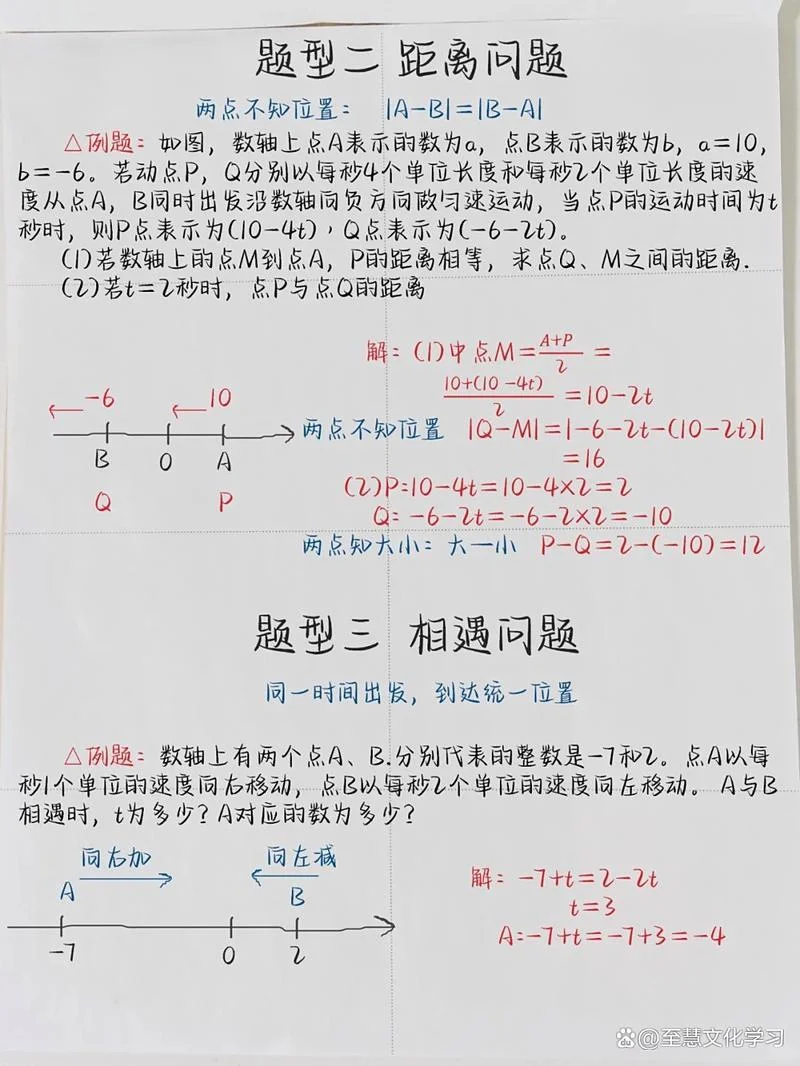 题型二 距离问题
两点不知位置: |A-B|=|B-A|
△例题: 如图, 数轴上点A表示的数为a, 点B表示的数为b, a=10,
b=-6。若动点P, Q分别以每秒4个单位长度和每秒2个单位长度的速
度从点A, B同时出发沿数轴向负方向做匀速运动, 当点P的运动时间为t
秒时, 则P点表示为(10-4t), Q点表示为(-6-2t)。
(1)若数轴上的点M到点A, P的距离相等, 求点Q、M之间的距离.
(2)若t=2秒时, 点P与点Q的距离
解: (1)中点M=\frac{A+P}{2}=
\frac{10+(10-4t)}{2}=10-2t
-6 10
B 0 A
Q P
两点不知位置 |Q-M|=|-6-2t-(10-2t)|
=16
(2)P:10-4t=10-4×2=2
Q: -6-2t=-6-2×2=-10
两点知大小: 大一小 P-Q=2-(-10)=12
题型三 相遇问题
同一时间出发, 到达统一位置
△例题: 数轴上有两个点A、B.分别代表的整数是-7和2。点A以每
秒1个单位的速度向右移动, 点B以每秒2个单位的速度向左移动。A与B
相遇时, t为多少? A对应的数为多少?
向右加 向左减
A B
-7 0 2
解: -7+t=2-2t
t=3
A:-7+t=-7+3=-4
@至慧文化学习